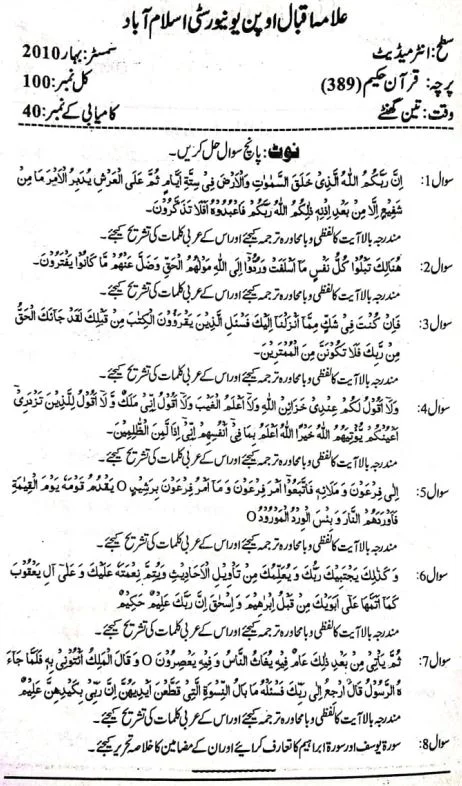 علامہ اقبال اوپن یونیورسٹی اسلام آباد
سطح: انٹرمیڈیٹ سمسٹر: بہار 2010
پرچہ: قرآن حکیم (389) کل نمبر: 100
وقت: تین گھنٹے کامیابی کے نمبر: 40
نوٹ: پانچ سوال حل کریں۔
سوال 1: اِنَّ رَبَّكُمُ اللهُ الَّذِىْ خَلَقَ السَّمٰوٰتِ وَالْاَرْضَ فِىْ سِتَّةِ اَيَّامٍ ثُمَّ عَلَى الْعَرْشِ يُدَبِّرُ الْاَمْرَ مَا مِنْ
شَفِيْعٍ اِلَّا مِنْ بَعْدِ اِذْنِهٖ ذٰلِكُمُ اللهُ رَبُّكُمْ فَاعْبُدُوْهُ اَفَلَا تَذَكَّرُوْنَ۔
مندرجہ بالا آیت کا لفظی و بامحاورہ ترجمہ کیجئے اور اس کے عربی کلمات کی تشریح کیجئے۔
سوال 2: هُنَالِكَ تَبْلُوْا كُلُّ نَفْسٍ مَّا اَسْلَفَتْ وَرُدُّوْا اِلَى اللهِ مَوْلٰهُمُ الْحَقِّ وَضَلَّ عَنْهُمْ مَّا كَانُوْا يَفْتَرُوْنَ۔
مندرجہ بالا آیت کا لفظی و بامحاورہ ترجمہ کیجئے اور اس کے عربی کلمات کی تشریح کیجئے۔
سوال 3: فَاِنْ كُنْتَ فِىْ شَكٍّ مِّمَّا اَنْزَلْنَا اِلَيْكَ فَسْئَلِ الَّذِيْنَ يَقْرَؤُوْنَ الْكِتٰبَ مِنْ قَبْلِكَ لَقَدْ جَآئَكَ الْحَقُّ
مِنْ رَّبِّكَ فَلَا تَكُوْنَنَّ مِنَ الْمُمْتَرِيْنَ۔
مندرجہ بالا آیت کا لفظی و بامحاورہ ترجمہ کیجئے اور اس کے عربی کلمات کی تشریح کیجئے۔
سوال 4: وَلَا اَقُوْلُ لَكُمْ عِنْدِىْ خَزَآئِنُ اللهِ وَلَا اَعْلَمُ الْغَيْبَ وَلَا اَقُوْلُ اِنِّىْ مَلَكٌ وَّ لَا اَقُوْلُ لِلَّذِيْنَ تَزْدَرِىْ
اَعْيُنُكُمْ لَنْ يُّؤْتِيَهُمُ اللهُ خَيْرًا اللهُ اَعْلَمُ بِمَا فِىْ اَنْفُسِهِمْ اِنِّىْ اِذًا لَّمِنَ الظّٰلِمِيْنَ۔
مندرجہ بالا آیت کا لفظی و بامحاورہ ترجمہ کیجئے اور اس کے عربی کلمات کی تشریح کیجئے۔
سوال 5: اِلٰى فِرْعَوْنَ وَ مَلَائِهٖ فَاتَّبَعُوْا اَمْرَ فِرْعَوْنَ وَ مَا اَمْرُ فِرْعَوْنَ بِرَشِيْدٍ O يَقْدُمُ قَوْمَهٗ يَوْمَ الْقِيٰمَةِ
فَاَوْرَدَهُمُ النَّارَ وَ بِئْسَ الْوِرْدُ الْمَوْرُوْدُ O
مندرجہ بالا آیت کا لفظی و بامحاورہ ترجمہ کیجئے اور اس کے عربی کلمات کی تشریح کیجئے۔
سوال 6: وَ كَذٰلِكَ يَجْتَبِيْكَ رَبُّكَ وَ يُعَلِّمُكَ مِنْ تَاْوِيْلِ الْاَحَادِيْثِ وَيُتِمُّ نِعْمَتَهٗ عَلَيْكَ وَ عَلٰى آلِ يَعْقُوْبَ
كَمَا اَتَمَّهَا عَلٰى اَبَوَيْكَ مِنْ قَبْلُ اِبْرٰهِيْمَ وَ اِسْحٰقَ اِنَّ رَبَّكَ عَلِيْمٌ حَكِيْمٌ
مندرجہ بالا آیت کا لفظی و بامحاورہ ترجمہ کیجئے اور اس کے عربی کلمات کی تشریح کیجئے۔
سوال 7: ثُمَّ يَاْتِىْ مِنْ بَعْدِ ذٰلِكَ عَامٌ فِيْهِ يُغَاثُ النَّاسُ وَ فِيْهِ يَعْصِرُوْنَ O وَ قَالَ الْمَلِكُ ائْتُوْنِىْ بِهٖ فَلَمَّا جَآءَ
هُ الرَّسُوْلُ قَالَ ارْجِعْ اِلٰى رَبِّكَ فَسْئَلْهُ مَا بَالُ النِّسْوَةِ الّٰتِىْ قَطَّعْنَ اَيْدِيَهُنَّ اِنَّ رَبِّىْ بِكَيْدِهِنَّ عَلِيْمٌ
مندرجہ بالا آیت کا لفظی و بامحاورہ ترجمہ کیجئے اور اس کے عربی کلمات کی تشریح کیجئے۔
سوال 8: سورۃ یوسف اور سورۃ ابراہیم کا تعارف کرایئے اور ان کے مضامین کا خلاصہ تحریر کیجئے۔